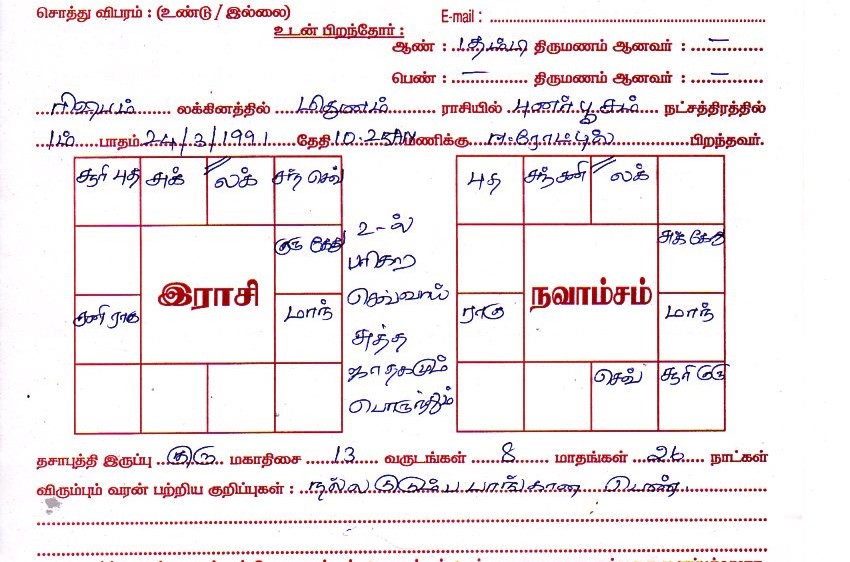 சொத்து விபரம் : (உண்டு / இல்லை)
E-mail :
உடன் பிறந்தோர் :
ஆண் : 1 தம்பி திருமணம் ஆனவர் : –
பெண் : – திருமணம் ஆனவர் : –
ரிஷபம் லக்கினத்தில் மிதுனம் ராசியில் புனர்பூசம் நட்சத்திரத்தில்
1ம் பாதம் 24/3/1991 தேதி 10.25AM மணிக்கு ஈரோட்டில் பிறந்தவர்.
சூரி புத சுக் லக் சந் செவ்
குரு கேது
சனி ராகு இராசி மாந்
2-ல்
பரிகார
செவ்வாய்
சுத்த
ஜாதகமும்
பொருந்தும்
புத சந் சனி லக்
சுக் கேது
ராகு நவாம்சம் மாந்
செவ் சூரி குரு
தசாபுத்தி இருப்பு குரு மகாதிசை 13 வருடங்கள் 8 மாதங்கள் 26 நாட்கள்
விரும்பும் வரன் பற்றிய குறிப்புகள் : நல்ல குடும்ப பாங்கான பெண்.